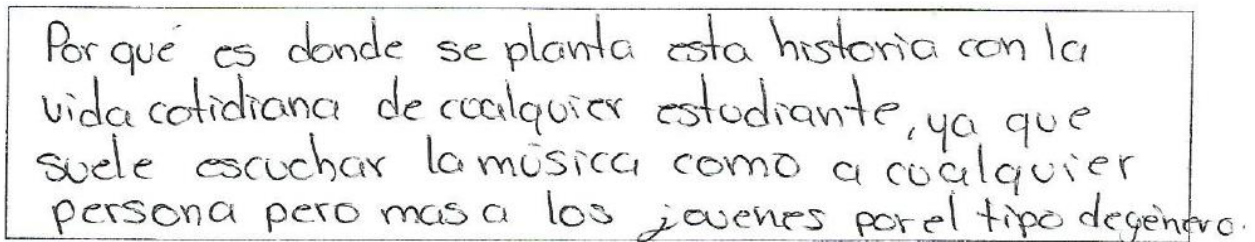 Por qué es donde se planta esta historia con la
vida cotidiana de cualquier estudiante, ya que
suele escuchar la música como a cualquier
persona pero mas a los jovenes por el tipo de género.